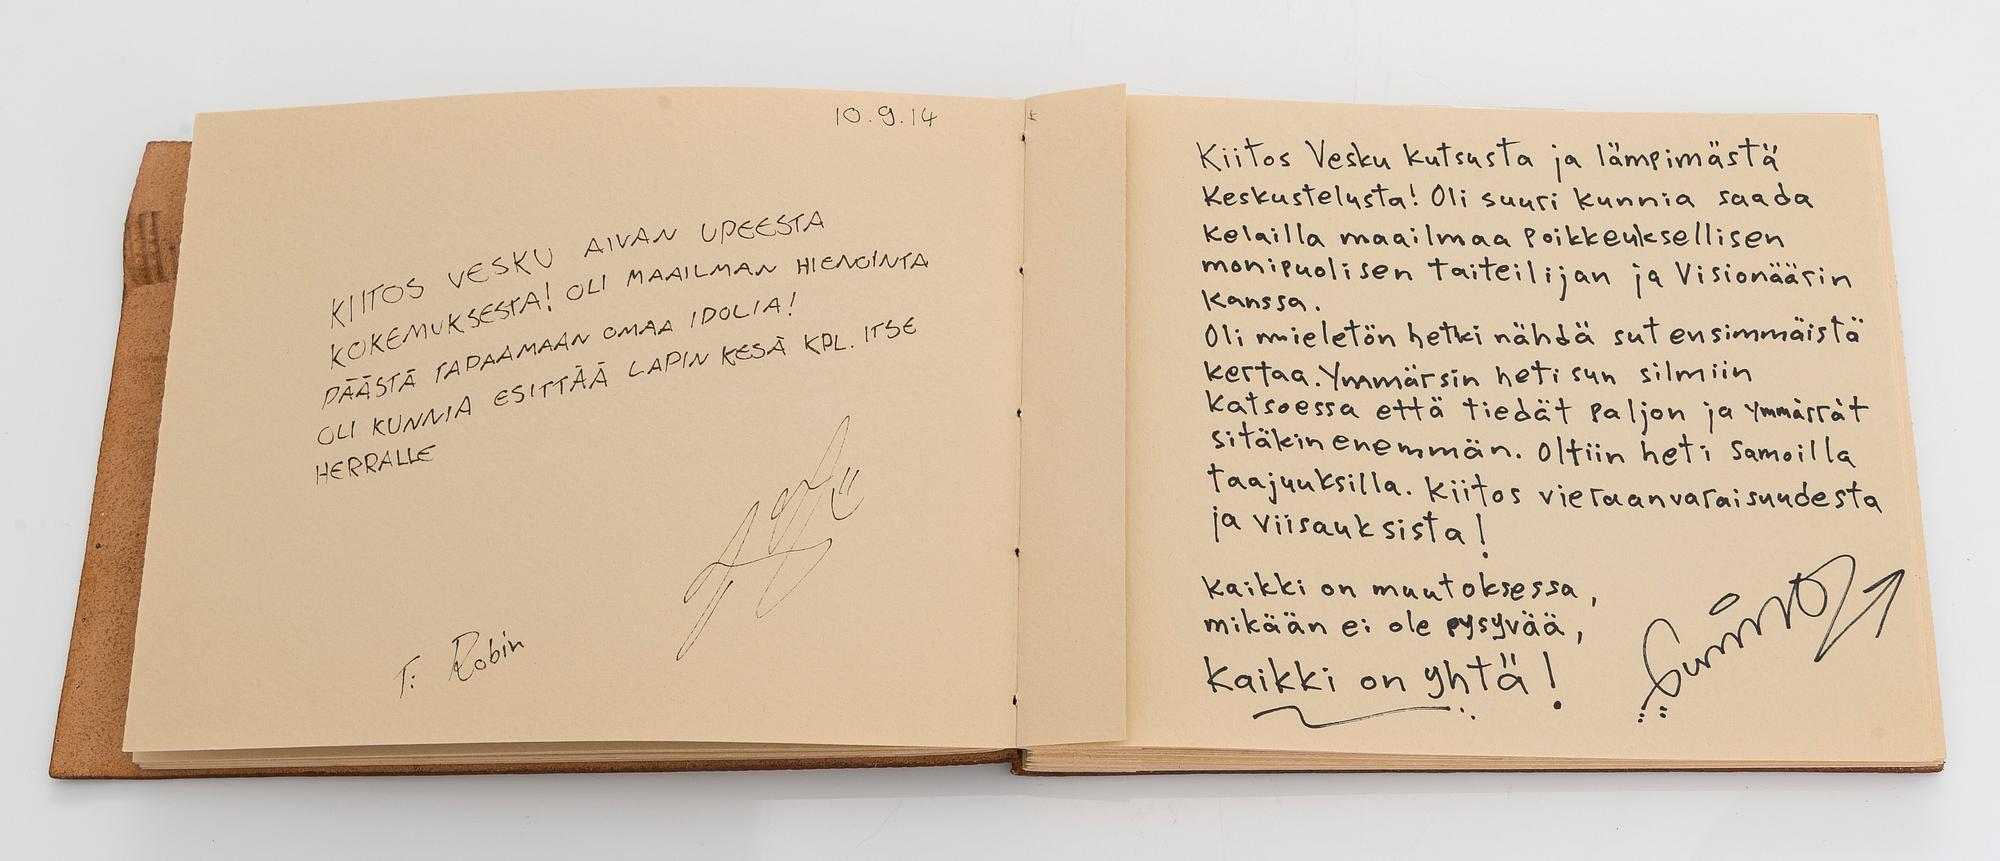 10.9.14
KIITOS VESKU AIVAN UPEESTA
KOKEMUKSESTA! OLI MAAILMAN HIENOINTA
PÄÄSTÄ TAPAAMAAN OMAA IDOLIA!
OLI KUNNIA ESITTÄÄ LAPIN KESÄ KPL. ITSE
HERRALLE
T: Robin
Kiitos Vesku kutsusta ja lämpimästä
keskustelusta! Oli suuri kunnia saada
kelailla maailmaa poikkeuksellisen
monipuolisen taiteilijan ja Visionäärin
kanssa.
Oli mieletön hetki nähdä sut ensimmäistä
kertaa. Ymmärsin heti sun silmiin
katsoessa että tiedät paljon ja ymmärrät
sitäkin enemmän. Oltiin heti samoilla
taajuuksilla. Kiitos vieraanvaraisuudesta
ja viisauksista!
Kaikki on muutoksessa,
mikään ei ole pysyvää,
Kaikki on yhtä!